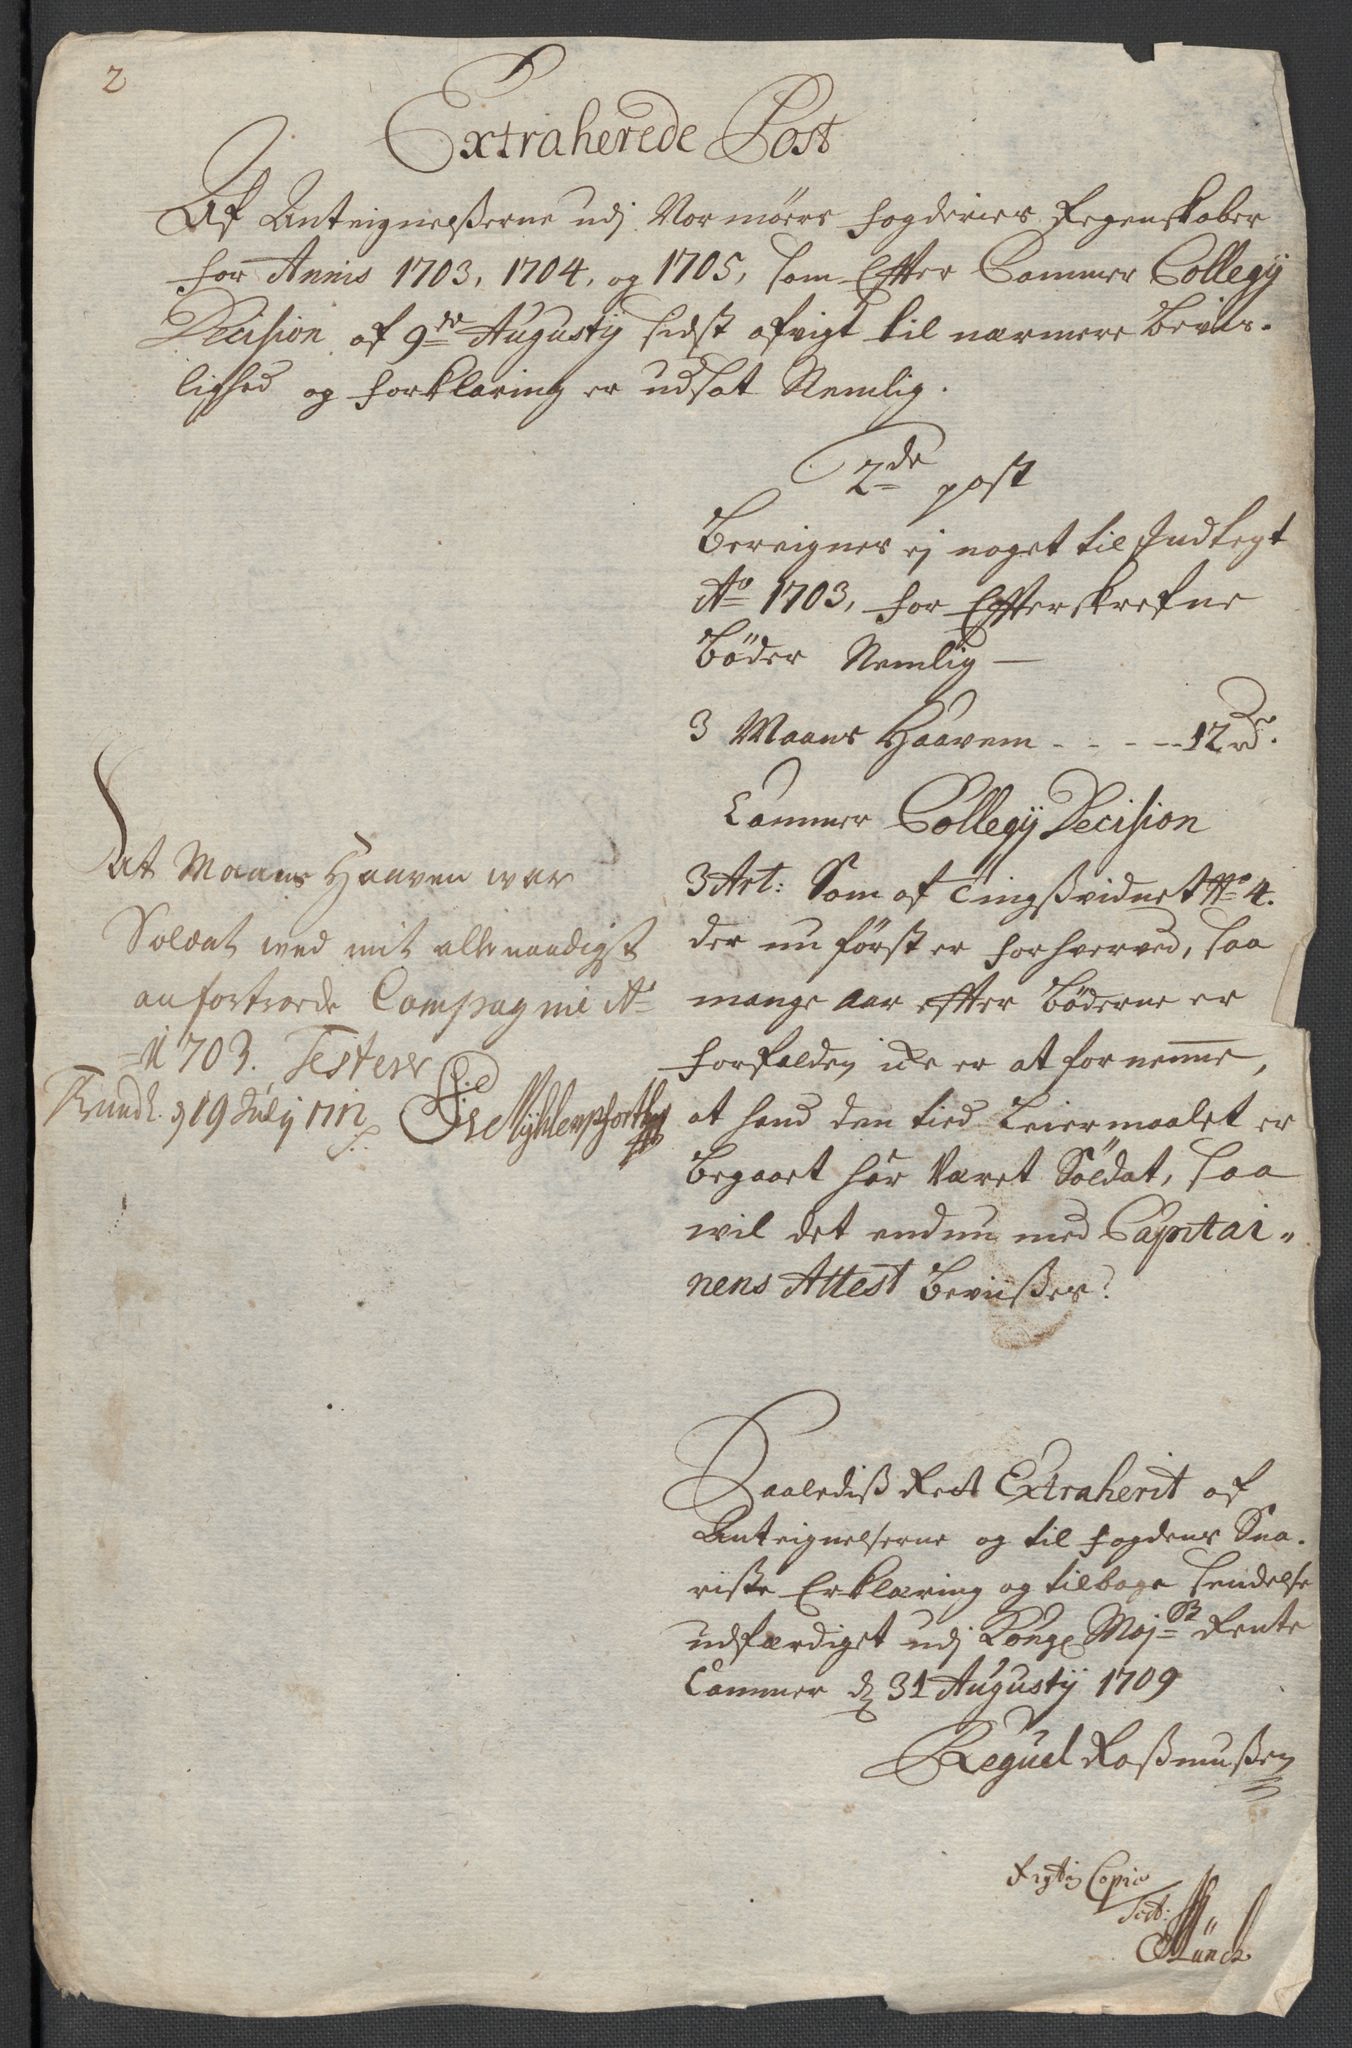 2
Extraherede Post
Af Anteignelßerne udj Normøers fogderies Regenskaber
for Annis 1703, 1704, og 1705, som Effter Cammer Collegij
Decision af 9de Augustij sidst afvigt til nærmere Bevis-
lighed og forklaring er udsat Nemlig.
2de post
Bereignes ej noget til Indtegt
Ao 1703, for Effterskrefne
Bøder Nemlig —
3 Maans Haavem - - - - 12 rdr.
Cammer Collegij Decision
3 Art: Som af Tingsvidnet No 4.
der nu først er forhverved, saa
mange aar effter Bøderne er
forfalden icke er at fornemme,
at hand den tied Leiermaalet er
Begaaet har været Soldat, saa
wil det endnu med Capitai-
nens Attest Beviißes.
At Maans Haaven war
Soldat wed mit allernaadigst
anfortroede Compagnie Ao
1703. Testerer
Trundh. d 19 Julij 1712
Saaledis Ret Extraherit af
Anteignelserne og til fogdens Sna-
riste Erklæring og tilbage sendelse
udfærdiget udj Kongl Maj=st Rente
Cammer d 31 Augustij 1709
Reguel Raßmußen
Rigtig Copie
Test:
Münch